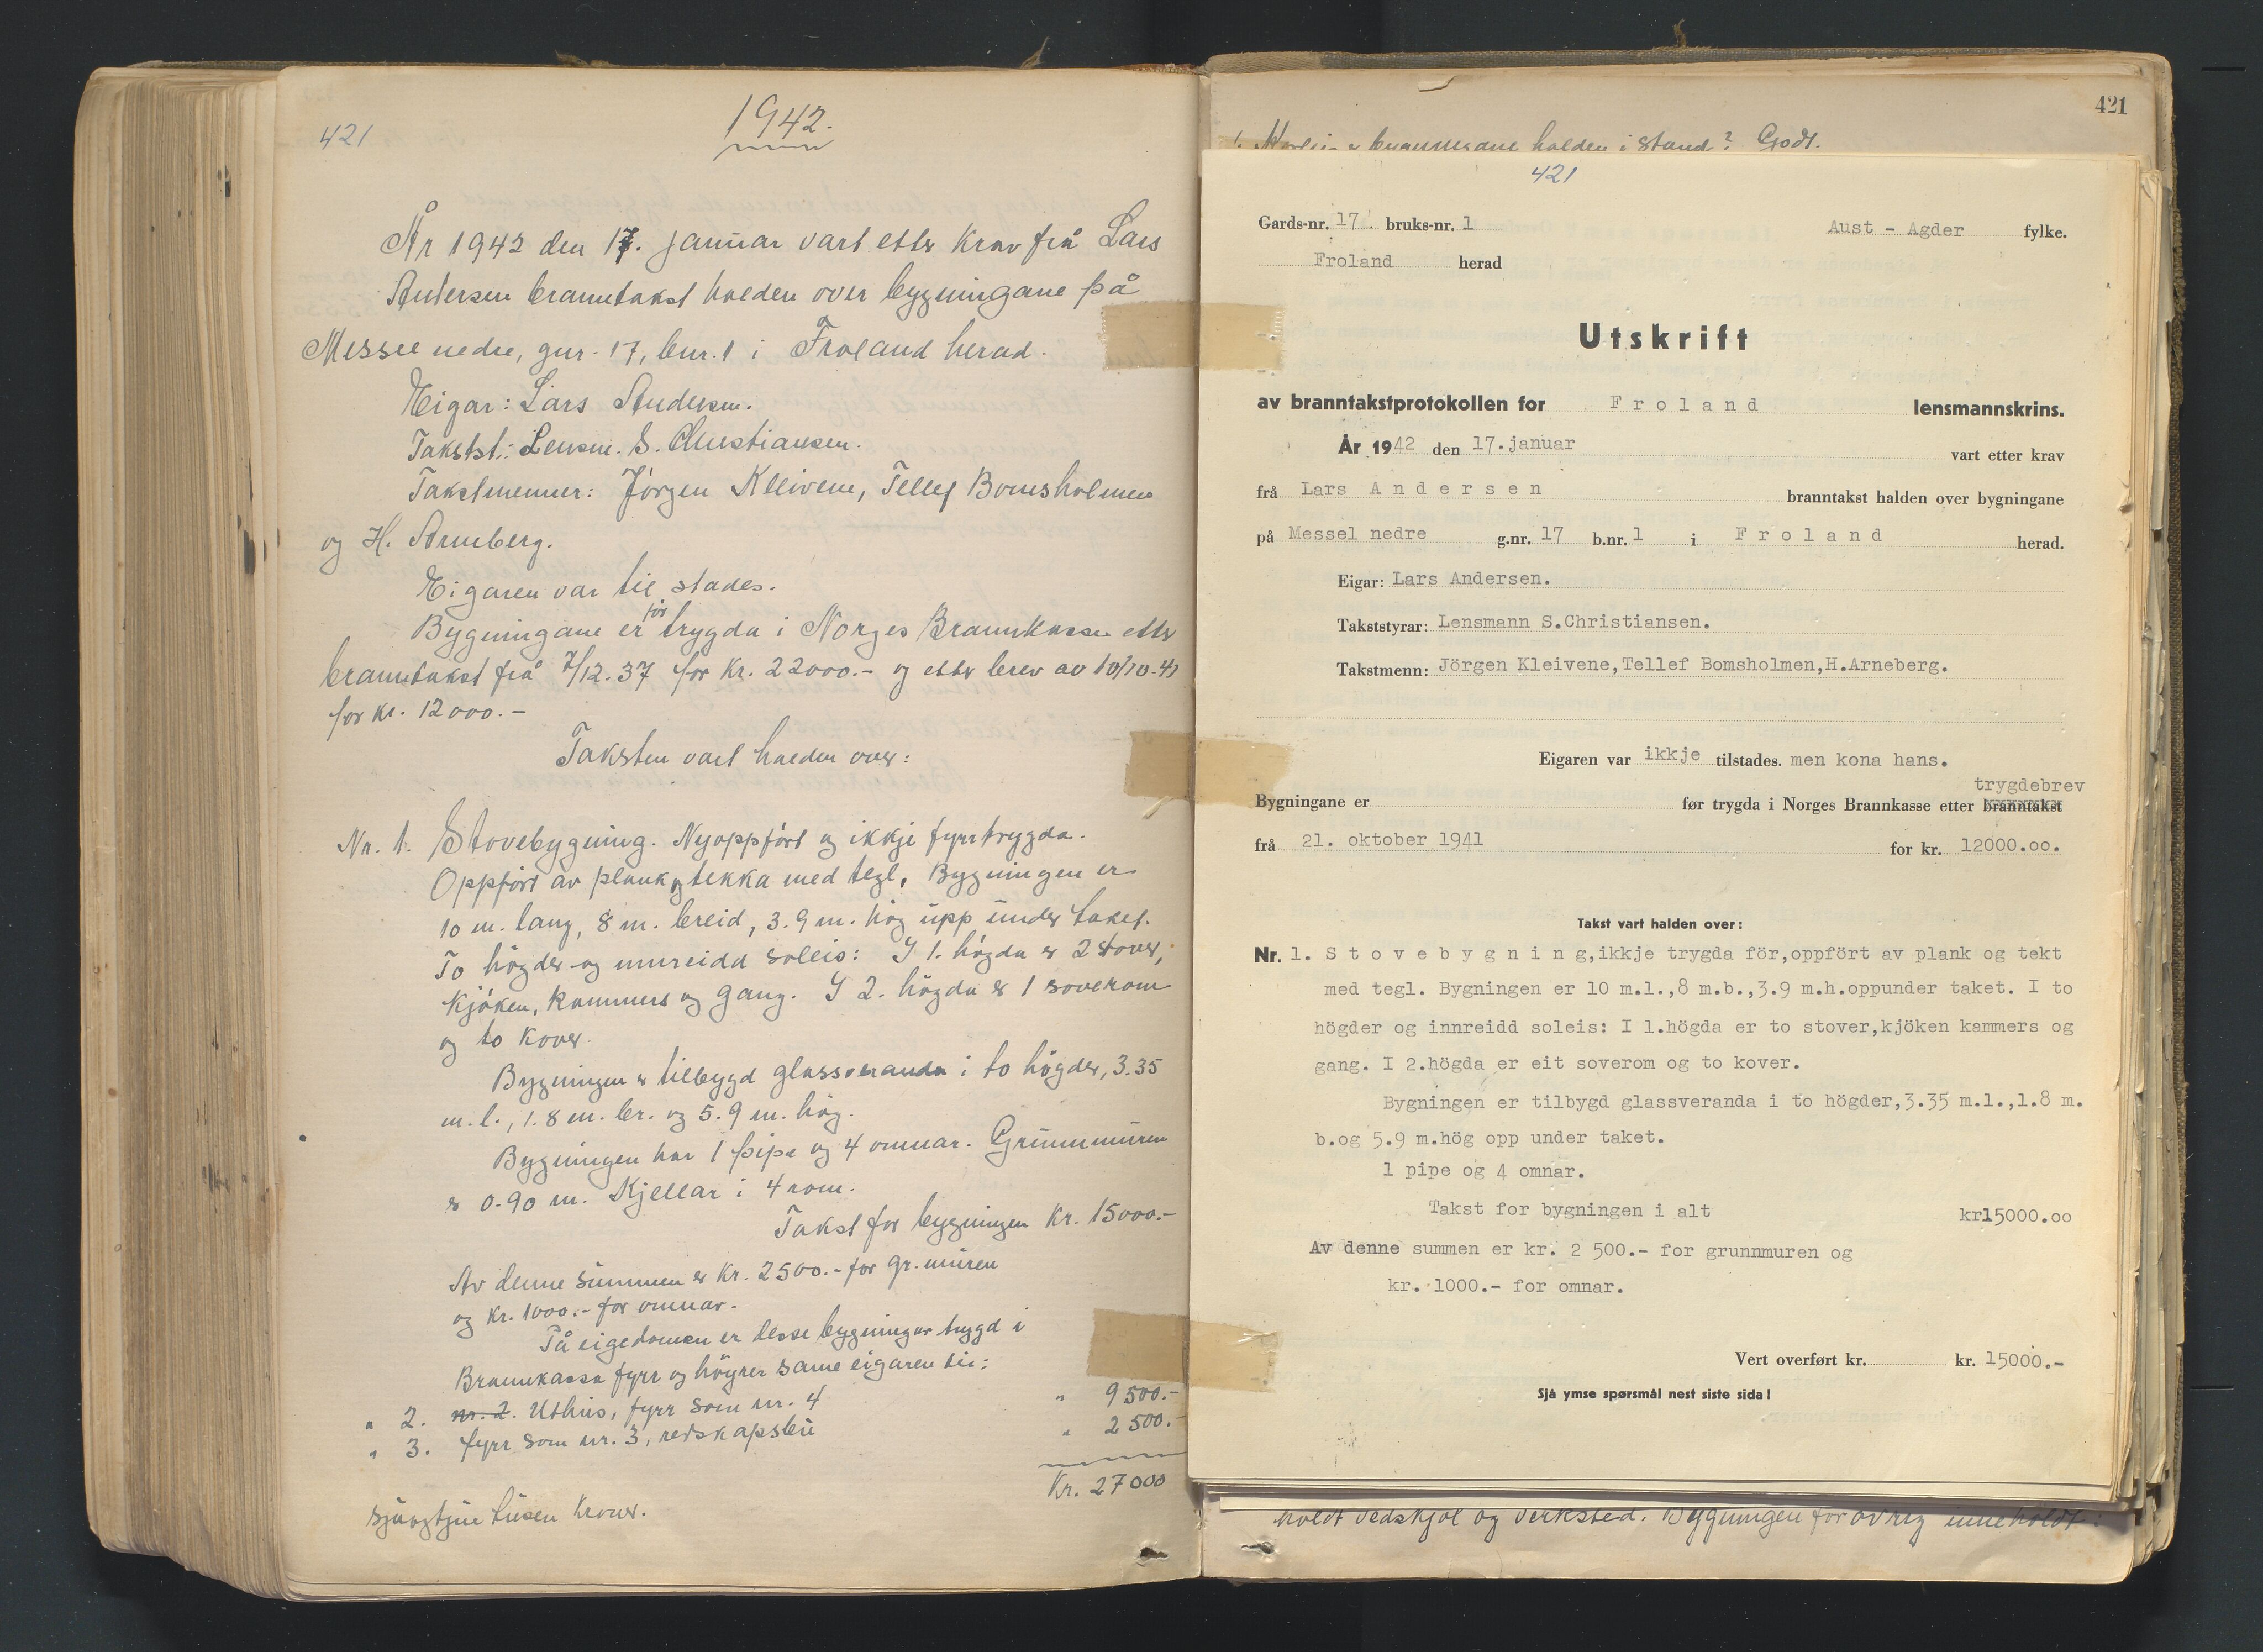 421
1942.
År 1942 den 17. januar vart etter krav frå Lars
Andersen branntakst halden over bygningane på
Messel nedre, gnr. 17, bnr. 1 i Froland herad.
Eigar: Lars Andersen.
Takstst.: Lensm. S. Christiansen.
Takstmenner: Jörgen Kleivene, Tellef Bomsholmen
og H. Arneberg.
Eigaren var til stades.
Bygningane er för trygda i Norges Brannkasse etter
branntakst frå 7/12.37 for kr. 22000.- og etter brev av 10/10-41
for kr. 12000.-
Taksten vart halden over:
Nr. 1. Stovebygning. Nyoppfört og ikkje fyrr trygda.
Oppfört av plank og tekka med tegl. Bygningen er
10 m. lang, 8 m. breid, 3.9 m. hög upp under taket.
To högder og innreidd soleis: I 1. högda er 2 stover,
kjöken, kammers og gang. I 2. högda er 1 soverom
og to kover.
Bygningen er tilbygd glassveranda i to högder, 3.35
m. l., 1.8 m. br. og 5.9 m. hög.
Bygningen har 1 pipe og 4 omnar. Grunnmuren
er 0.90 m. Kjellar i 4 rom.
Takst for bygningen kr. 15000.-
Av denne summen er kr. 2500.- for gr.muren
og kr. 1000.- for omnar.
På eigedomen er desse bygningar trygd i
Brannkassa fyrr og höyrer same eigaren til:
" 2. nr. 2. Uthus, fyrr som nr. 4 " 9500.-
" 3. fyrr som nr. 3, redskapsbu " 2500.-
Kr. 27000
sjuogtjue tusen kroner.
421
bygningane halden i stand? Godt.
421
Gards-nr. 17. bruks-nr. 1 Aust - Agder fylke.
Froland herad
Utskrift
av branntakstprotokollen for Froland lensmannskrins.
År 1942 den 17. januar vart etter krav
frå Lars Andersen branntakst halden over bygningane
på Messel nedre g.nr. 17 b.nr. 1 i Froland herad.
Eigar: Lars Andersen.
Takststyrar: Lensmann S.Christiansen.
Takstmenn: Jörgen Kleivene,Tellef Bomsholmen,H.Arneberg.
Eigaren var ikkje tilstades. men kona hans.
trygdebrev
Bygningane er før trygda i Norges Brannkasse etter branntakst
frå 21. oktober 1941 for kr. 12000.oo.
Takst vart halden over:
Nr. 1. Stovebygning,ikkje trygda för,oppfört av plank og tekt
med tegl. Bygningen er 10 m.l.,8 m.b.,3.9 m.h.oppunder taket. I to
högder og innreidd soleis: I 1.högda er to stover,kjöken kammers og
gang. I 2.högda er eit soverom og to kover.
Bygningen er tilbygd glassveranda i to högder,3.35 m.l.,1.8 m.
b.og 5.9 m.hög opp under taket.
1 pipe og 4 omnar.
Takst for bygningen i alt kr15000.oo
Av denne summen er kr. 2 500.- for grunnmuren og
kr. 1000.- for omnar.
Vert overført kr. kr. 15000.-
Sjå ymse spørsmål nest siste sida!
holdt vedskjol og verksted. Bygningen for övrig inneholdt: